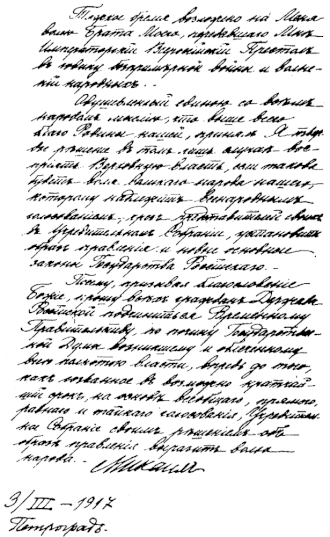 Тяжкое бремя возложено на Меня
волею Брата Моего, передавшего Мне
Императорскій Всероссійскій Престолъ
въ годину безпримѣрной войны и волне-
ній народныхъ.
Одушевленный единою со всѣмъ
народомъ мыслію, что выше всего
благо Родины нашей, принялъ Я твер-
дое рѣшеніе въ томъ лишь случаѣ вос-
пріять Верховную власть, если такова
будетъ воля Великаго народа нашего,
которому надлежитъ всенароднымъ
голосованіемъ, чрезъ представителей своихъ
въ Учредительномъ Собраніи, установить
образъ правленія и новые основные
законы Государства Россійскаго.
Посему, призывая благословеніе
Божіе, прошу всѣхъ гражданъ Державы
Россійской подчиниться Временному
Правительству, по почину Государствен-
ной Думы возникшему и облеченному
всею полнотою власти, впредь до того,
какъ созванное въ возможно кратчай-
шій срокъ, на основѣ всеобщаго, прямого,
равнаго и тайнаго голосованія, Учредитель-
ное Собраніе своимъ рѣшеніемъ объ
образѣ правленія выразитъ волю
народа.
Михаилъ
3/III – 1917
Петроградъ.